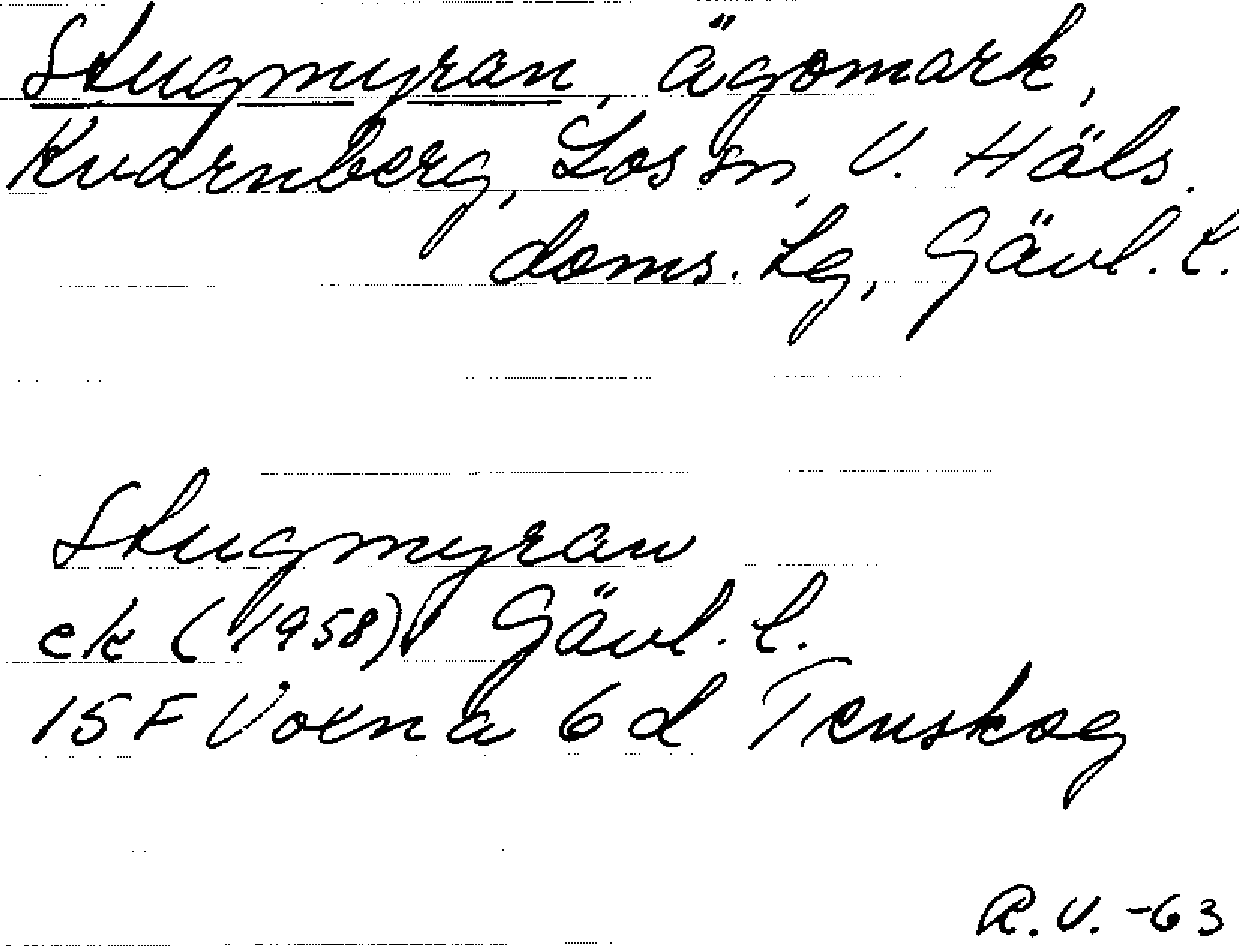 Stugmyran, ägomark,
Kvarnberg, Los sn, V. Häls.
doms. lg, Gävl. l.
Stugmyran
ek (1958) Gävl. l.
15F Voxna 6d Tenskog
R.V. -63